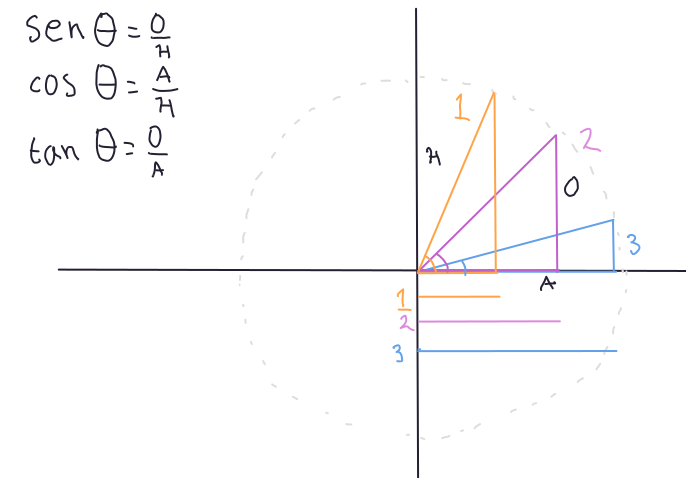 sen θ = O/H
cos θ = A/H
tan θ = O/A
1
2
H
O
3
A
1
2
3